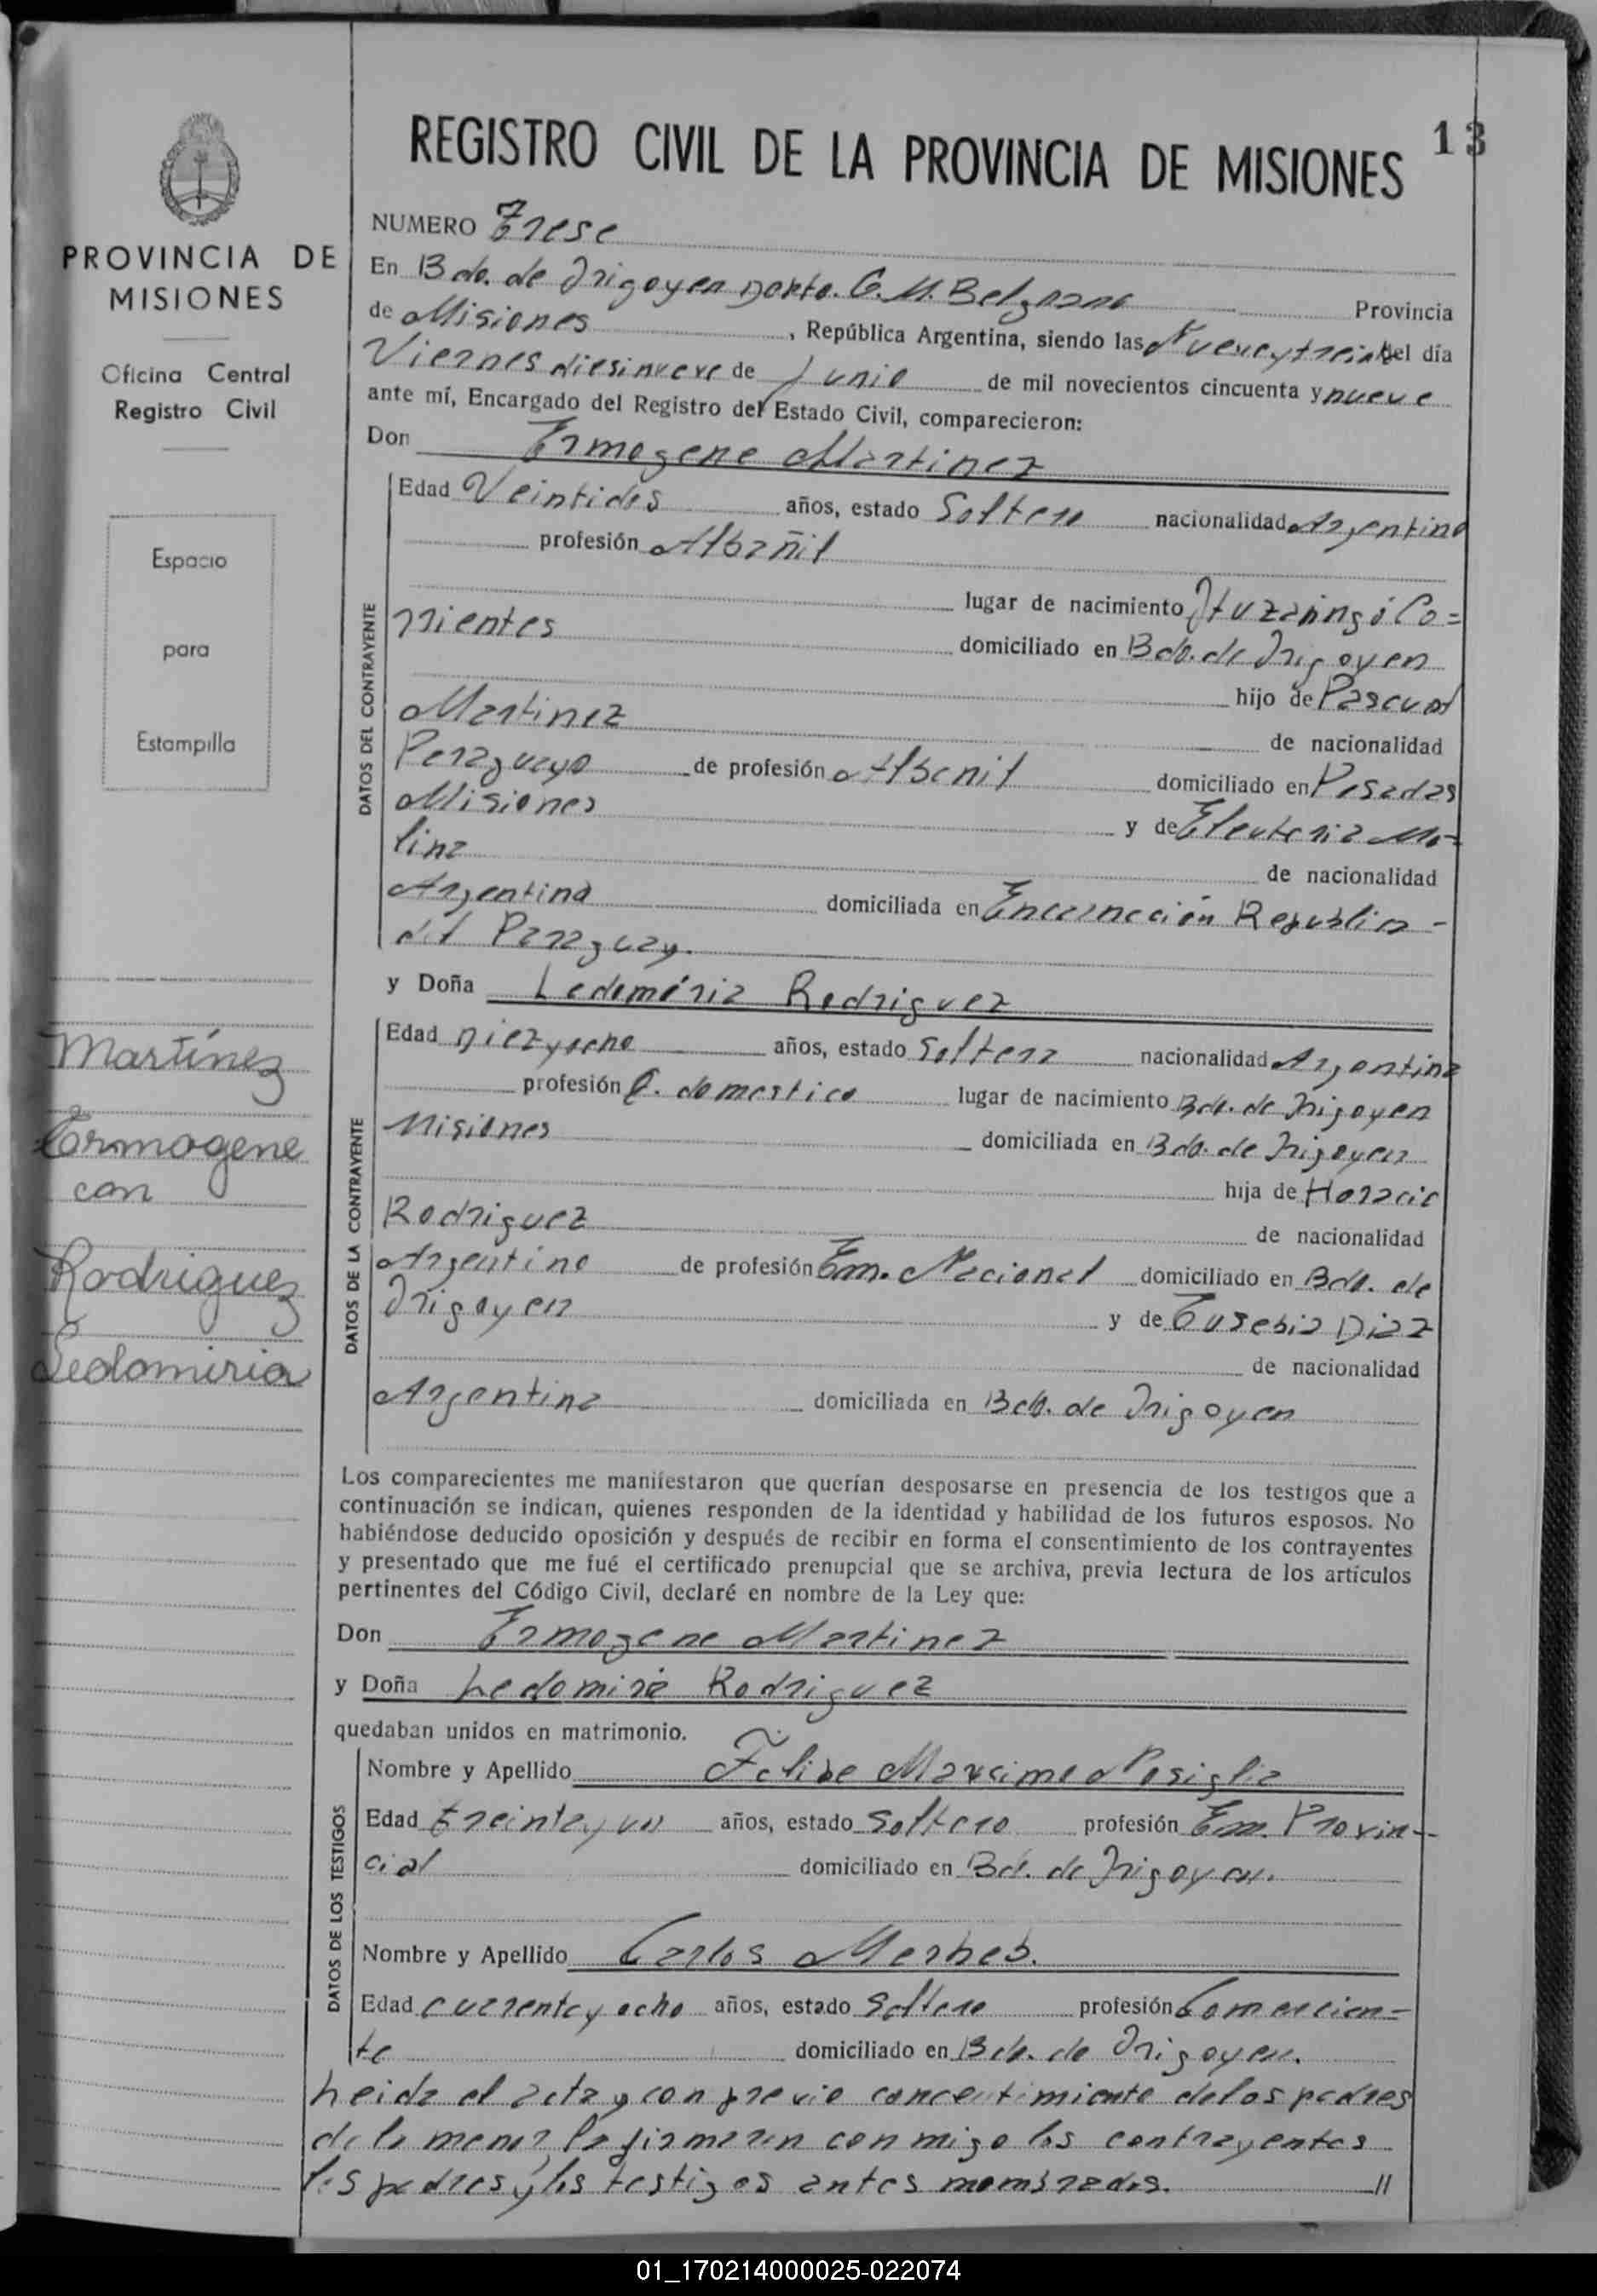 REGISTRO CIVIL DE LA PROVINCIA DE MISIONES 13
PROVINCIA DE
MISIONES
Oficina Central
Registro Civil
Espacio
para
Estampilla
Martínez
Ermogene
con
Rodriguez
Ledomiria
NUMERO Trese
En Bdo. de Irigoyen Dpkto. G. M. Belgrano Provincia
de Misiones, República Argentina, siendo las Nueve y treinta del día
Viernes diesinueve de Junio de mil novecientos cincuenta y nueve
ante mí, Encargado del Registro del Estado Civil, comparecieron:
Don Ermogene Martinez
DATOS DEL CONTRAYENTE
Edad Veintidos años, estado Soltero nacionalidad Argentino
profesión Albañil
lugar de nacimiento Ituzaingó Co=
rrientes
domiciliado en Bdo. de Irigoyen
hijo de Pascual
Martinez
de nacionalidad
Paraguayo de profesión Albanil domiciliado en Posadas
Misiones y de Eleuteria Mo-
lina
de nacionalidad
Argentina domiciliada en Encarnación Republica -
del Paraguay.
y Doña Ledoméria Rodriguez
DATOS DE LA CONTRAYENTE
Edad Diezyocho años, estado Soltera nacionalidad Argentina
profesión Q. domestico lugar de nacimiento Bdo. de Irigoyen
Misiones domiciliada en Bdo. de Irigoyen
hija de Horacio
Rodriguez
de nacionalidad
Argentino de profesión Em. Nacional domiciliado en Bdo. de
Irigoyen y de Eusebia Diaz
de nacionalidad
Argentina domiciliada en Bdo. de Irigoyen
Los comparecientes me manifestaron que querían desposarse en presencia de los testigos que a
continuación se indican, quienes responden de la identidad y habilidad de los futuros esposos. No
habiéndose deducido oposición y después de recibir en forma el consentimiento de los contrayentes
y presentado que me fué el certificado prenupcial que se archiva, previa lectura de los artículos
pertinentes del Código Civil, declaré en nombre de la Ley que:
Don Ermogene Martinez
y Doña Ledomiria Rodriguez
quedaban unidos en matrimonio.
DATOS DE LOS TESTIGOS
Nombre y Apellido Felipe Maxcimo Nosiglia
Edad treintayun años, estado Soltero profesión Em. Provin-
cial domiciliado en Bdo. de Irigoyen.
Nombre y Apellido Carlos Merheb.
Edad cuarentayocho años, estado Soltero profesión Comercian=
te domiciliado en Bdo. de Irigoyen.
Leida el acta y con previo concentimiento delos padres
de la menor la firmaran conmigo los contrayentes
los padres y los testigos antes mombrados. //
01_170214000025-022074